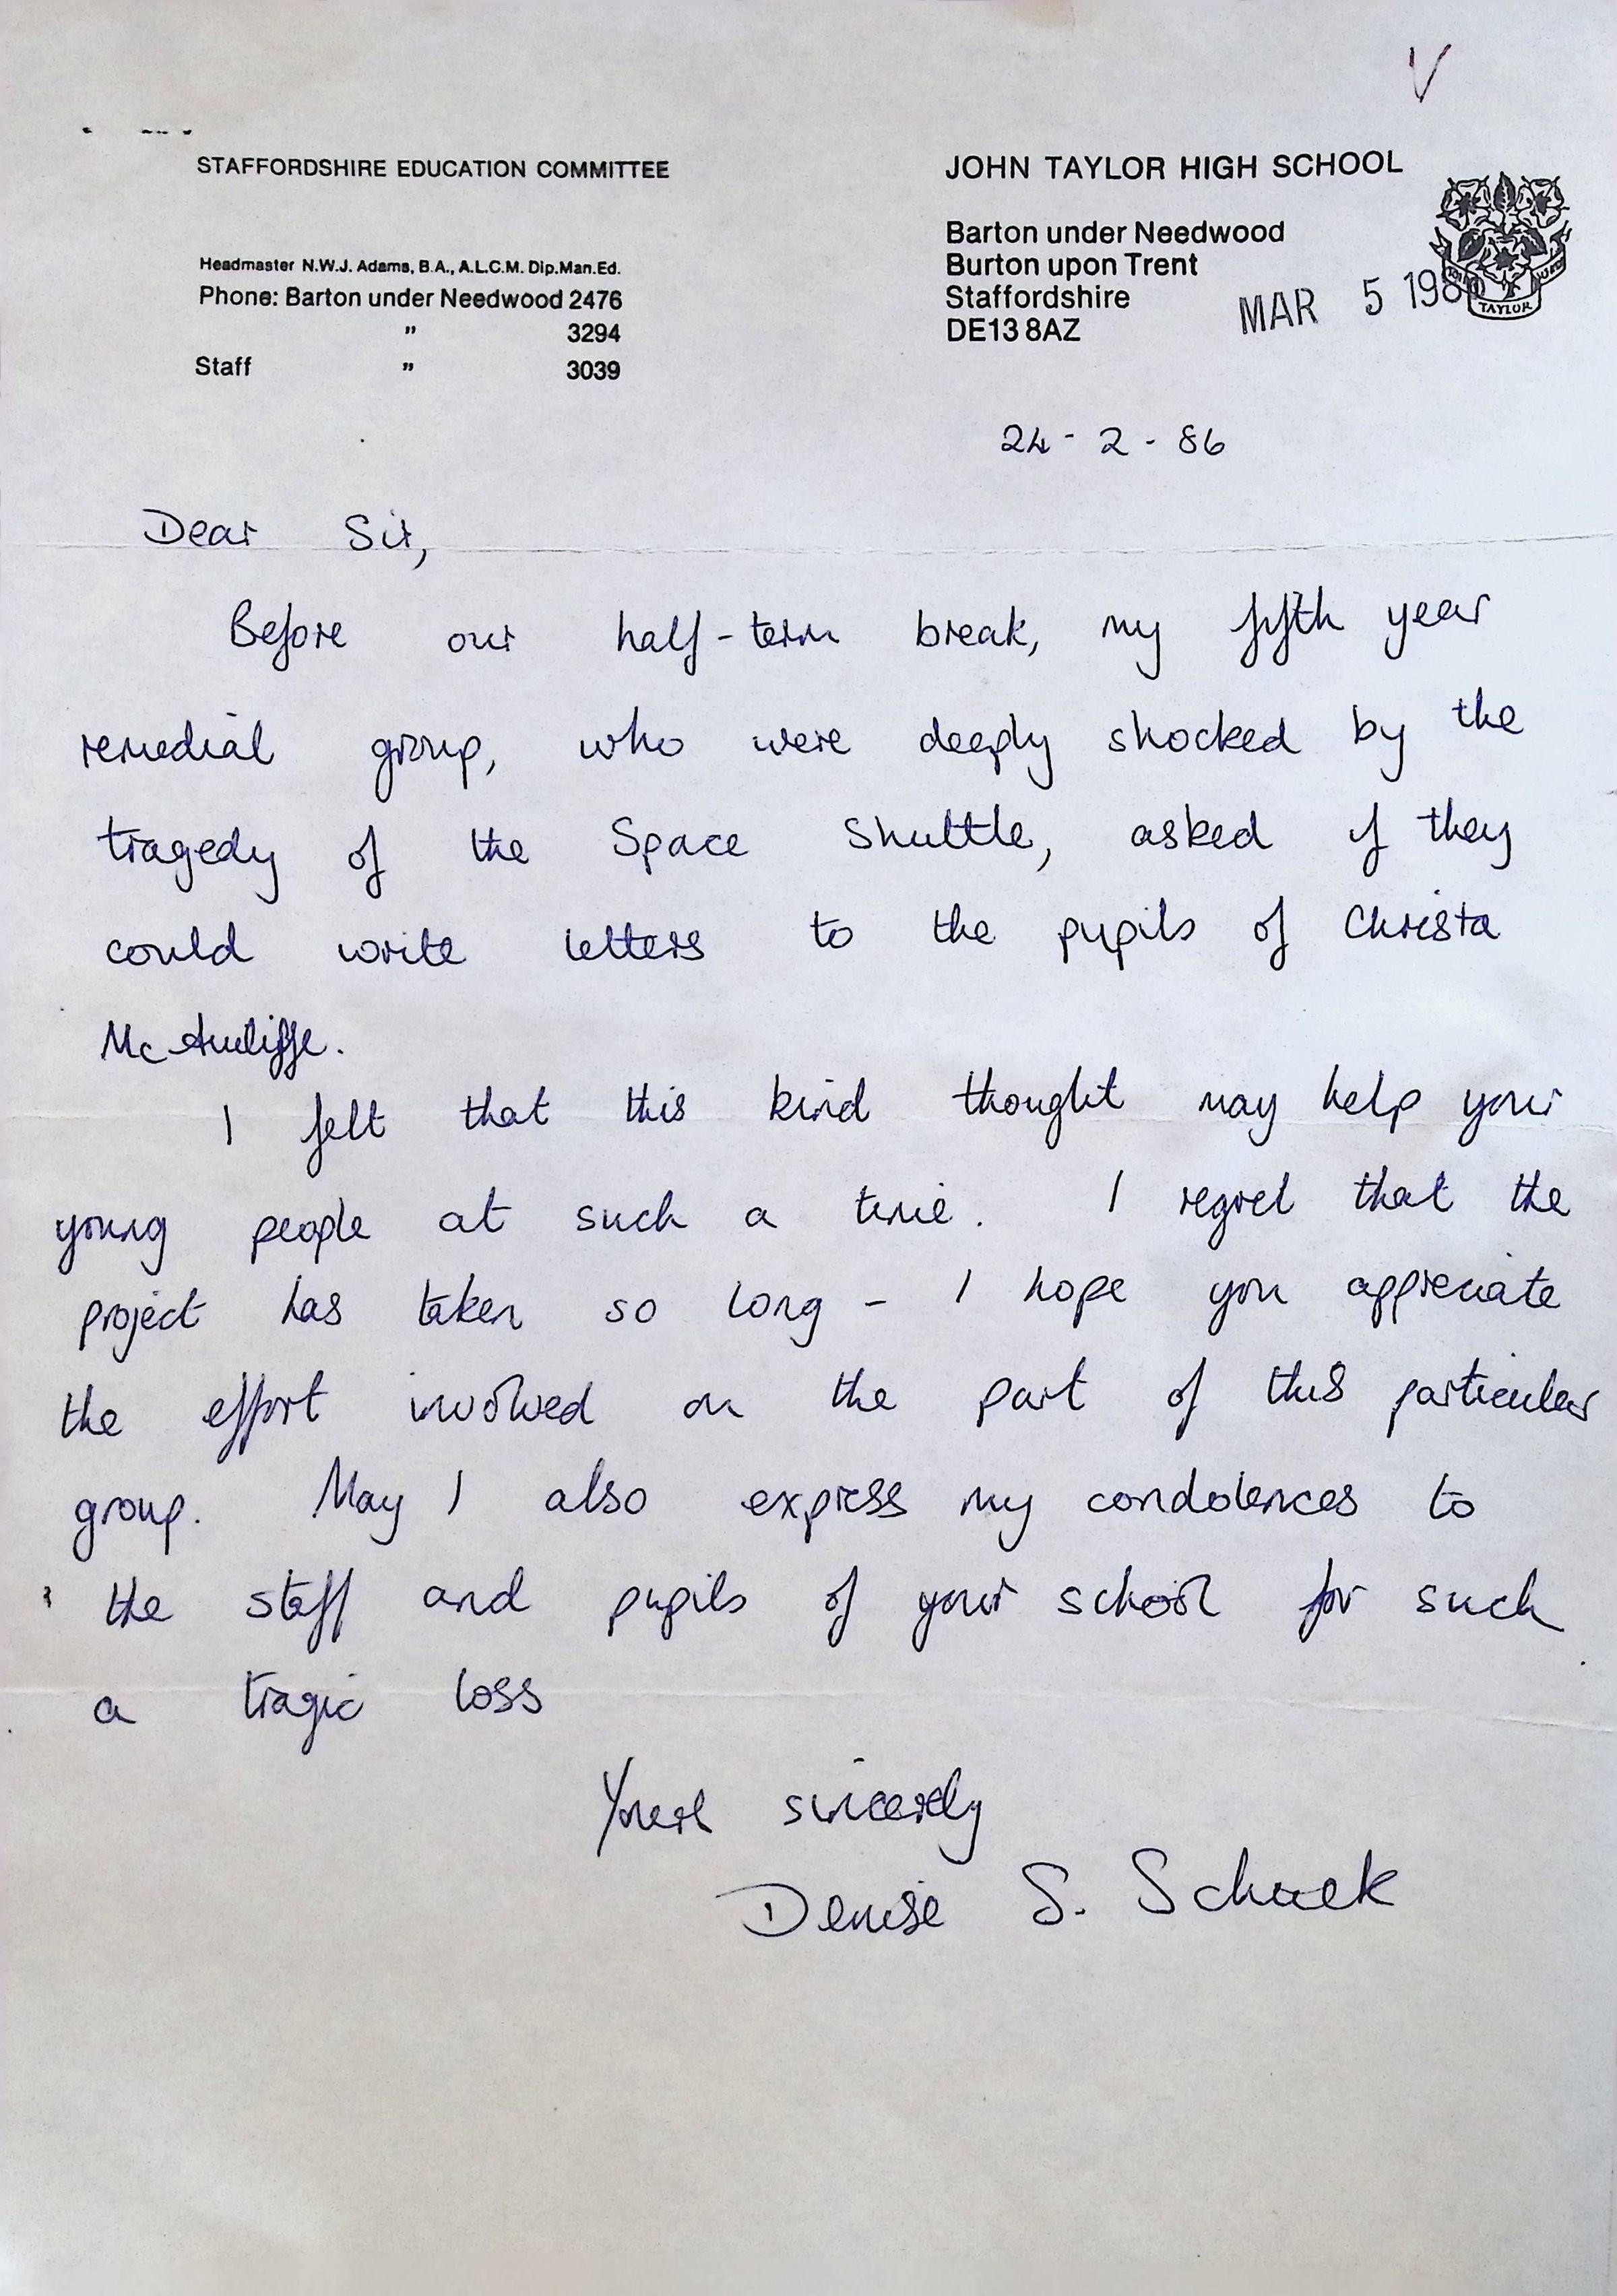 STAFFORDSHIRE EDUCATION COMMITTEE
Headmaster N.W.J. Adams, B.A., A.L.C.M. Dip.Man.Ed.
Phone: Barton under Needwood 2476
" 3294
Staff " 3039
JOHN TAYLOR HIGH SCHOOL
Barton under Needwood
Burton upon Trent
Staffordshire
DE13 8AZ
MAR 5 1986
TAYLOR
24-2-86
Dear Sir,
Before our half-term break, my fifth year
remedial group, who were deeply shocked by the
tragedy of the Space Shuttle, asked if they
could write letters to the pupils of Christa
McAuliffe.
I felt that this kind thought may help your
young people at such a time. I regret that the
project has taken so long - I hope you appreciate
the effort involved on the part of this particular
group. May I also express my condolences to
the staff and pupils of your school for such
a tragic loss
Yours sincerely
Denise S.